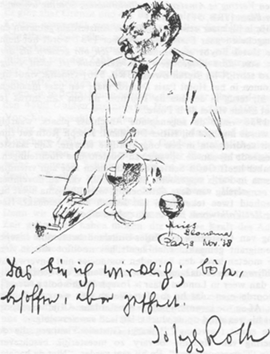 Mies
Blomsma
Parijs Nov '38
Das bin ich wirklich; böse,
besoffen, aber gescheit.
Joseph Roth